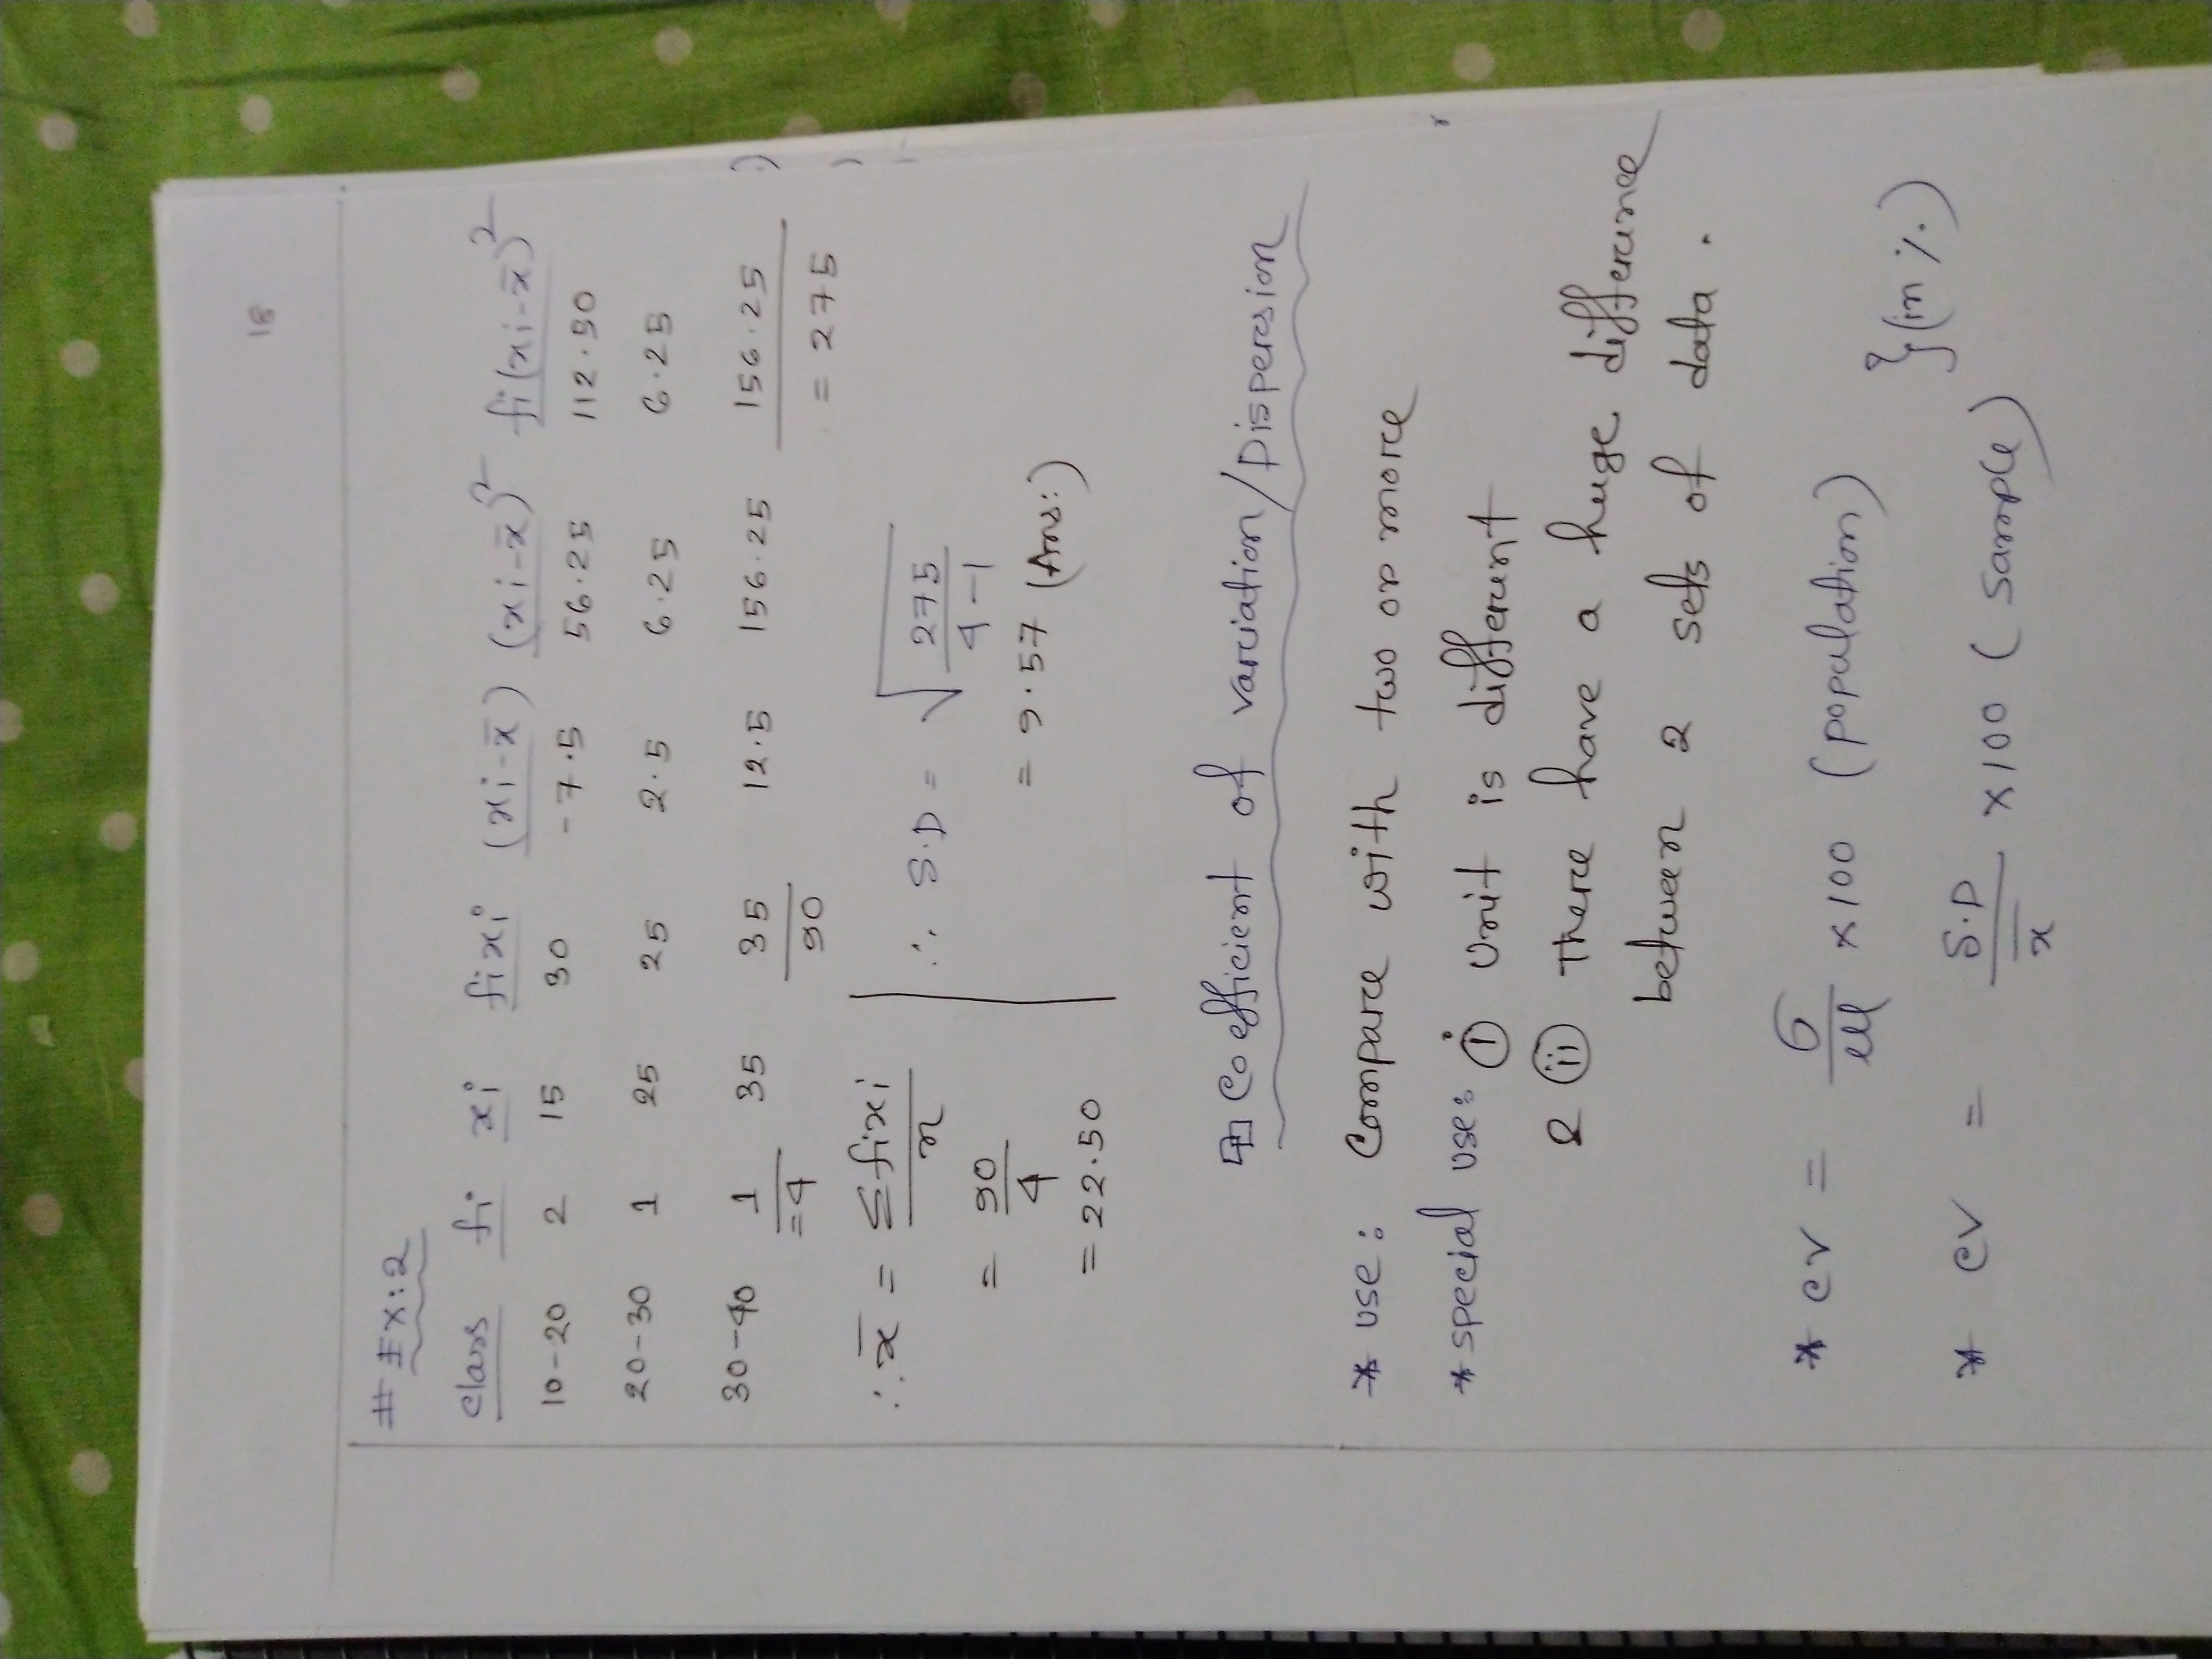 18
# Ex:2
class fi xi fixi (xi-x̄) (xi-x̄)² fi(xi-x̄)²
10-20 2 15 30 -7.5 56.25 112.50
20-30 1 25 25 2.5 6.25 6.25
30-40 1 35 35 12.5 156.25 156.25
=4 90 = 275
∴ x̄ = Σfixi / n
= 90/4
= 22.50
∴ S.D = √(275 / 4-1)
= 9.57 (Ans:)
Coefficient of variation/Dispersion
* use: Compare with two or more
* special use: (i) Unit is different
& (ii) There have a huge difference
between 2 sets of data.
* cv = σ/μ ×100 (population)
* cv = S.D/x̄ ×100 (sample)
} (in %)